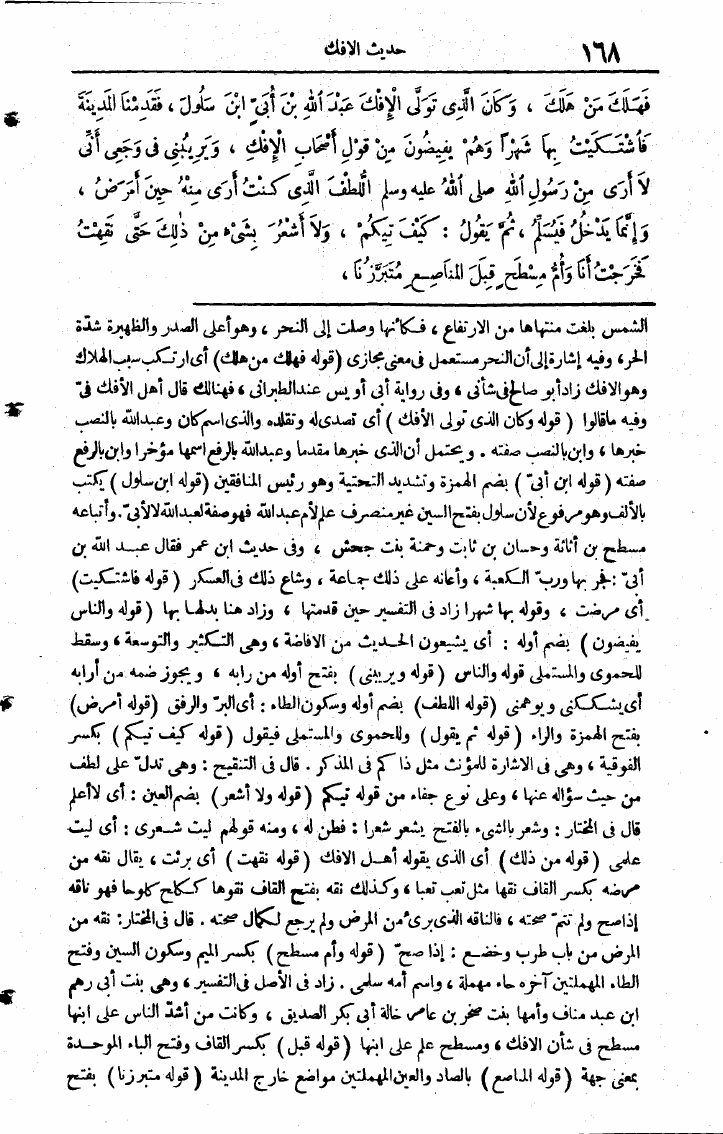 ١٦٨
حديث الافك
فَهَلَكَ مَنْ هَلَكَ ، وَكَانَ الَّذِى تَوَلَّى الْإِفْكَ عَبْدَ اللهِ بْنَ أُبَىّ ابْنَ سَلُولَ ، فَقَدِمْنَا الْمَدِينَةَ
فَاشْتَكَيْتُ بِهَا شَهْرًا وَهُمْ يَفِيضُونَ مِنْ قَوْلِ أَصْحَابِ الْإِفْكِ ، وَيَرِيبُنِى فِى وَجَعِى أَنِّى
لَا أَرَى مِنْ رَسُولِ اللهِ صلى اللهُ عليه وسلم اللُّطْفَ الَّذِى كُنْتُ أَرَى مِنْهُ حِينَ أَمْرَضُ ،
وَإِنَّمَا يَدْخُلُ فَيُسَلِّمُ ، ثُمَّ يَقُولُ : كَيْفَ تِيكُمْ ، وَلَا أَشْعُرُ بِشَىْءٍ مِنْ ذٰلِكَ حَتَّى نَقَهْتُ
فَخَرَجْتُ أَنَا وَأُمُّ مِسْطَحٍ قِبَلَ المَنَاصِعِ مُتَبَرَّزُنَا ،
الشمس بلغت منتهاها من الارتفاع ، فكأنها وصلت إلى النحر ، وهو أعلى الصدر والظهيرة شدّة
الحر ، وفيه إشارة إلى أن النحر مستعمل فى معنى مجازى (قوله فهلك من هلك) أى ارتكب سبب الهلاك
وهو الافك زاد أبو صالح فى شأنى ، وفى رواية أبى أويس عند الطبرانى ، فهنالك قال أهل الأفك فىّ
وفيه ماقالوا ( قوله وكان الذى تولى الأفك ) أى تصدى له وتقلده والذى اسم كان وعبد الله بالنصب
خبرها ، وابن بالنصب صفته . ويحتمل أن الذى خبرها مقدما وعبد الله بالرفع اسمها مؤخرا وابن بالرفع
صفته ( قوله ابن أبىّ ) بضم الهمزة وتشديد التحتية وهو رئيس المنافقين (قوله ابن سلول ) يكتب
بالألف وهو مرفوع لأن سلول بفتح السين غير منصرف علم لأم عبد الله فهو صفة لعبد الله لا لأبىّ . وأتباعه
مسطح بن أثاثة وحسان بن ثابت وحمنة بنت جحش ، وفى حديث ابن عمر فقال عبد الله بن
أبىّ : فجر بها وربّ الكعبة ، وأعانه على ذلك جماعة ، وشاع ذلك فى العسكر ( قوله فاشتكيت)
أى مرضت ، وقوله بها شهرا زاد فى التفسير حين قدمتها ، وزاد هنا بدلها بها ( قوله والناس
يفيضون ) بضم أوله : أى يشيعون الحديث من الافاضة ، وهى التكثير والتوسعة ، وسقط
للحموى والمستملى قوله والناس ( قوله ويريبنى ) بفتح أوله من رابه ، ويجوز ضمه من أرابه
أى يشككنى ويوهمنى (قوله اللطف) بضم أوله وسكون الطاء : أى البرّ والرفق (قوله أمرض)
بفتح الهمزة والراء ( قوله ثم يقول ) وللحموى والمستملى فيقول ( قوله كيف تيكم ) بكسر
الفوقية ، وهى فى الاشارة للمؤنث مثل ذاكم فى المذكر . قال فى التنقيح : وهى تدلّ على لطف
من حيث سؤاله عنها ، وعلى نوع جفاء من قوله تيكم ( قوله ولا أشعر ) بضم العين : أى لاأعلم
قال فى المختار : وشعر بالشىء بالفتح يشعر شعرا : فطن له ، ومنه قولهم ليت شعرى : أى ليت
علمى ( قوله من ذلك ) أى الذى يقوله أهل الافك ( قوله نقهت ) أى برئت ، يقال نقه من
مرضه بكسر القاف نقها مثل تعب تعبا ، وكذلك نقه بفتح القاف نقوها ككلح كلوحا فهو ناقه
إذا صح ولم تتمّ صحته ، فالناقه الذى برىء من المرض ولم يرجع لكمال صحته . قال فى المختار : نقه من
المرض من باب طرب وخضع : إذا صحّ ( قوله وأم مسطح ) بكسر الميم وسكون السين وفتح
الطاء المهملتين آخره حاء مهملة ، واسم أمه سلمى . زاد فى الأصل فى التفسير ، وهى بنت أبى رهم
ابن عبد مناف وأمها بنت صخر بن عامر خالة أبى بكر الصديق ، وكانت من أشدّ الناس على ابنها
مسطح فى شأن الافك ، ومسطح علم على ابنها ( قوله قبل ) بكسر القاف وفتح الباء الموحدة
بمعنى جهة ( قوله المناصع ) بالصاد والعين المهملتين مواضع خارج المدينة ( قوله متبرزنا ) بفتح